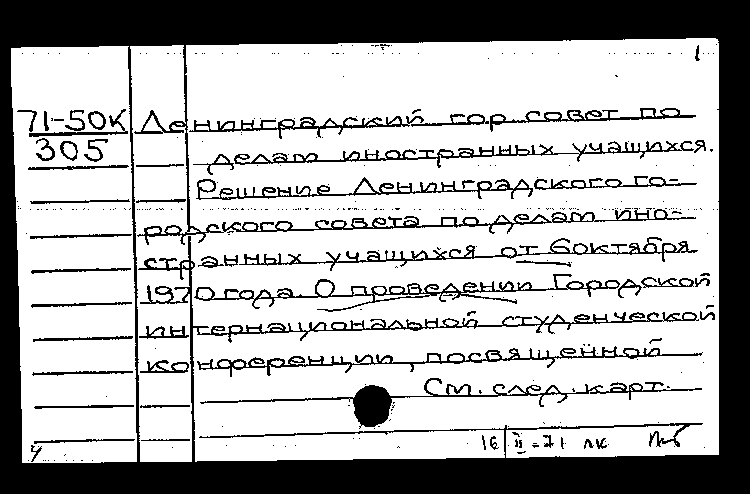 1
71-50К Ленинградский гор совет по
305 делам иностранных учащихся.
Решение Ленинградского го-
родского совета по делам ино-
странных учащихся от 6 октября
1970 года. О проведении Городской
интернациональной студенческой
конференции, посвященной
См. след. карт.
16/II-71 лк